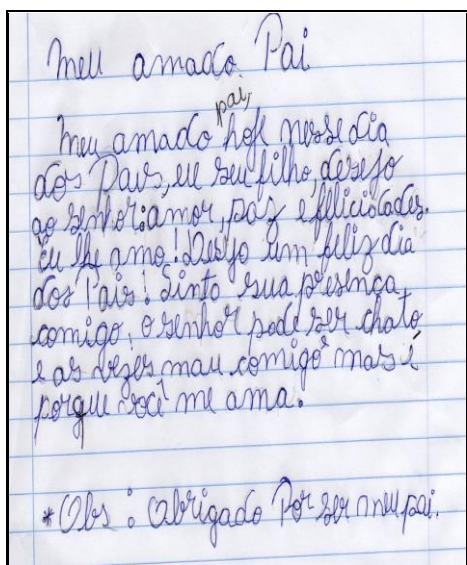 Meu amado Pai
Meu amado pai, hoje nesse dia
dos Pais, eu seu filho, desejo
ao senhor: amor, paz e felicidades.
Eu lhe amo! Desejo um feliz dia
dos Pais! Sinto sua presença
comigo, o senhor pode ser chato
e as vezes mau comigo mas é
porque você me ama.
*Obs: Obrigado Por ser meu pai.